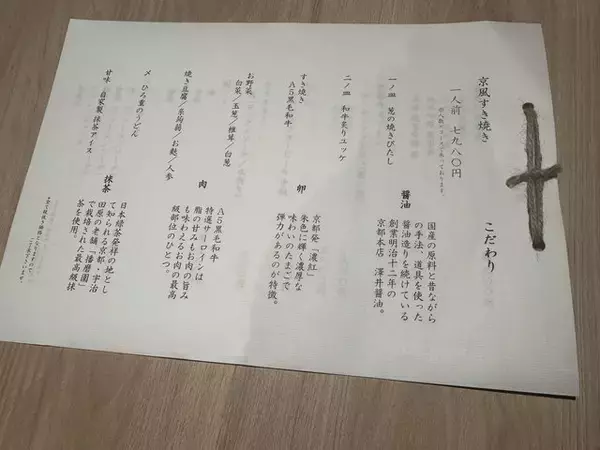 京風すき焼き
一人前 七九八〇円
一ノ皿 葱の焼きびたし
二ノ皿 和牛炙りユッケ
すき焼き
A5黒毛和牛
お野菜
白菜／玉葱／椎茸／白葱
焼き豆腐／糸蒟蒻／お麩／人参
〆 ひみ重のうどん
甘味 自家製 抹茶アイス
こだわり
醤油
国産の原料と昔ながら
の手法、道具を使った
醤油造りを続けている
創業明治十二年の
京都本店 澤井醤油。
卵
京都発「濃紅」
朱色に輝く濃厚な
味わいのたまごで
弾力があるのが特徴。
肉
A5黒毛和牛
特選サーロインは
脂の甘みもお肉の旨み
も味わえるお肉の最高
級部位のひとつ。
抹茶
日本緑茶発祥の地とし
て知られる京都・宇治
田原の老舗「播磨園」
で栽培された最高級抹
茶を使用。